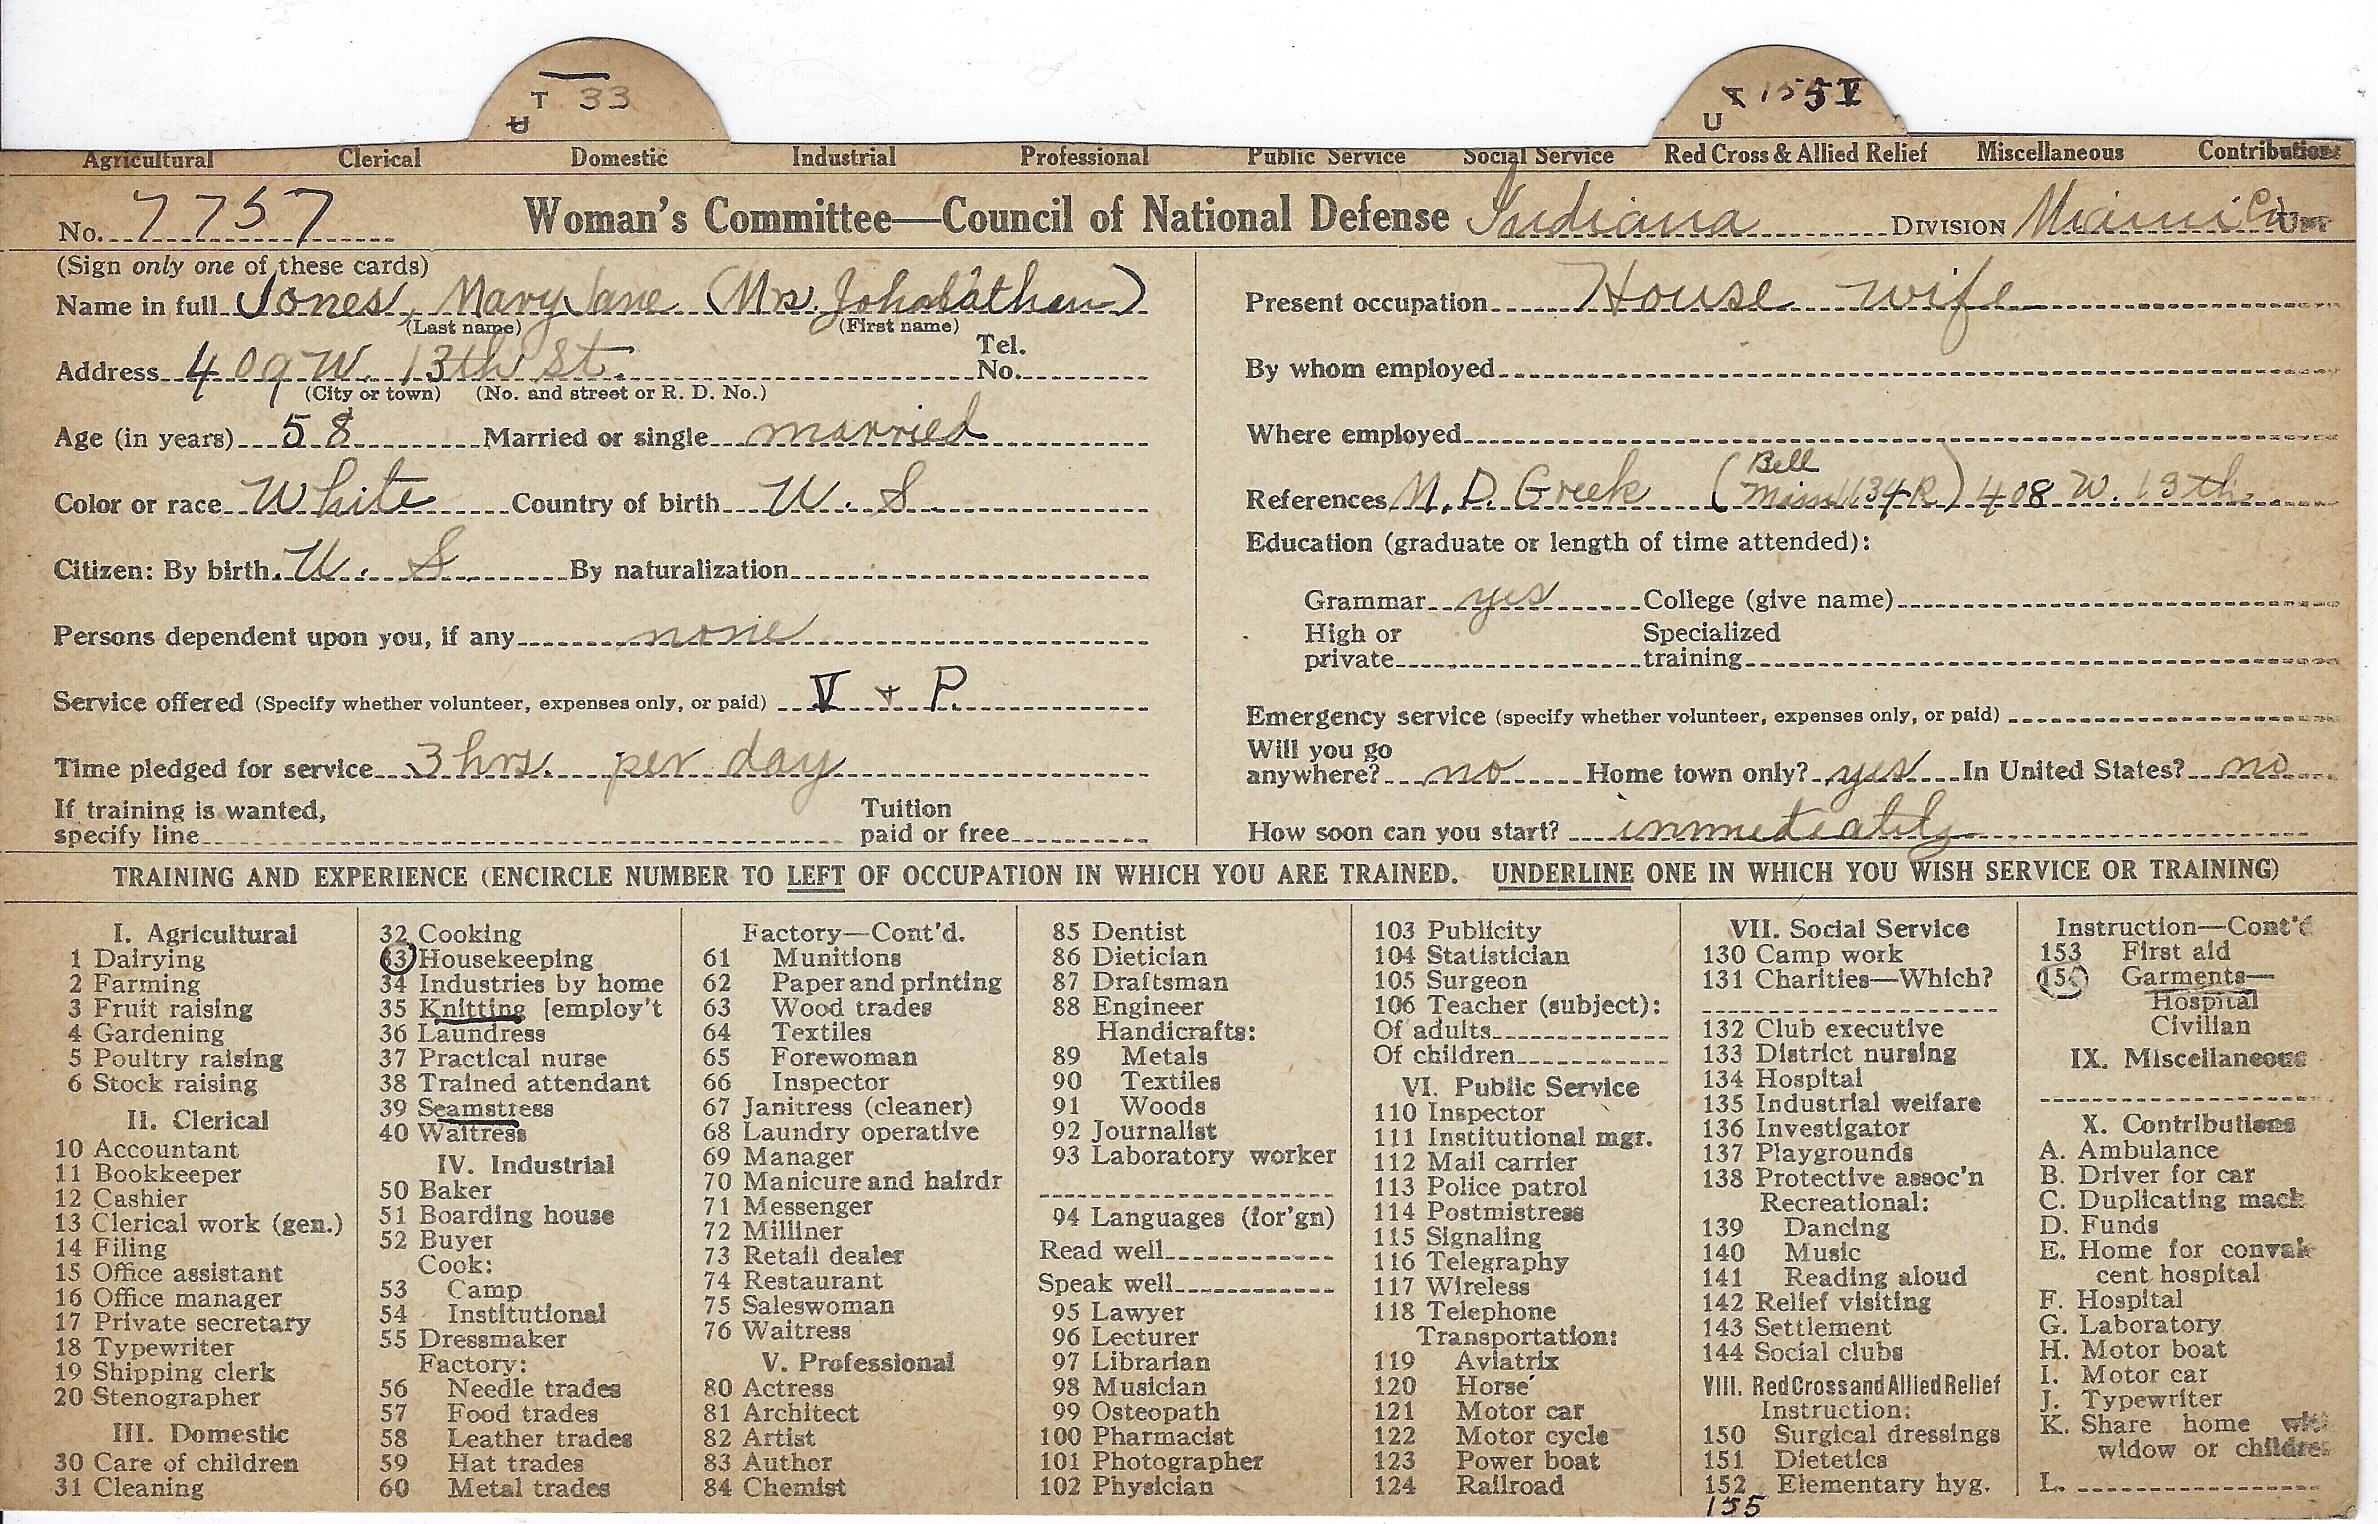 T 33
U
T 155 V
U
Agricultural Clerical Domestic Industrial Professional Public Service Social Service Red Cross & Allied Relief Miscellaneous Contributions
No. 7757 Woman's Committee—Council of National Defense Indiana DIVISION Miami Co. Unit
(Sign only one of these cards)
Name in full Jones, Mary Jane (Mrs. Johnathan)
(Last name) (First name)
Address 409 W. 13th St. Tel. No.
(City or town) (No. and street or R. D. No.)
Age (in years) 58 Married or single married
Color or race White Country of birth U. S.
Citizen: By birth U. S. By naturalization
Persons dependent upon you, if any none
Service offered (Specify whether volunteer, expenses only, or paid) V + P.
Time pledged for service 3 hrs. per day
If training is wanted,
specify line Tuition paid or free
Present occupation House wife
By whom employed
Where employed
Bell
References M. D. Greek ( 1134R) 408 W. 13th.
Education (graduate or length of time attended):
Grammar yes College (give name)
High or private Specialized training
Emergency service (specify whether volunteer, expenses only, or paid)
Will you go
anywhere? no Home town only? yes In United States? no
How soon can you start? immediately
TRAINING AND EXPERIENCE (ENCIRCLE NUMBER TO LEFT OF OCCUPATION IN WHICH YOU ARE TRAINED. UNDERLINE ONE IN WHICH YOU WISH SERVICE OR TRAINING)
I. Agricultural
1 Dairying
2 Farming
3 Fruit raising
4 Gardening
5 Poultry raising
6 Stock raising
II. Clerical
10 Accountant
11 Bookkeeper
12 Cashier
13 Clerical work (gen.)
14 Filing
15 Office assistant
16 Office manager
17 Private secretary
18 Typewriter
19 Shipping clerk
20 Stenographer
III. Domestic
30 Care of children
31 Cleaning
32 Cooking
33 Housekeeping
34 Industries by home
35 Knitting [employ't
36 Laundress
37 Practical nurse
38 Trained attendant
39 Seamstress
40 Waitress
IV. Industrial
50 Baker
51 Boarding house
52 Buyer
Cook:
53 Camp
54 Institutional
55 Dressmaker
Factory:
56 Needle trades
57 Food trades
58 Leather trades
59 Hat trades
60 Metal trades
Factory—Cont'd.
61 Munitions
62 Paper and printing
63 Wood trades
64 Textiles
65 Forewoman
66 Inspector
67 Janitress (cleaner)
68 Laundry operative
69 Manager
70 Manicure and hairdr
71 Messenger
72 Milliner
73 Retail dealer
74 Restaurant
75 Saleswoman
76 Waitress
V. Professional
80 Actress
81 Architect
82 Artist
83 Author
84 Chemist
85 Dentist
86 Dietician
87 Draftsman
88 Engineer
Handicrafts:
89 Metals
90 Textiles
91 Woods
92 Journalist
93 Laboratory worker
94 Languages (for'gn)
Read well
Speak well
95 Lawyer
96 Lecturer
97 Librarian
98 Musician
99 Osteopath
100 Pharmacist
101 Photographer
102 Physician
103 Publicity
104 Statistician
105 Surgeon
106 Teacher (subject):
Of adults
Of children
VI. Public Service
110 Inspector
111 Institutional mgr.
112 Mail carrier
113 Police patrol
114 Postmistress
115 Signaling
116 Telegraphy
117 Wireless
118 Telephone
Transportation:
119 Aviatrix
120 Horse
121 Motor car
122 Motor cycle
123 Power boat
124 Railroad
VII. Social Service
130 Camp work
131 Charities—Which?
132 Club executive
133 District nursing
134 Hospital
135 Industrial welfare
136 Investigator
137 Playgrounds
138 Protective assoc'n
Recreational:
139 Dancing
140 Music
141 Reading aloud
142 Relief visiting
143 Settlement
144 Social clubs
VIII. Red Cross and Allied Relief
Instruction:
150 Surgical dressings
151 Dietetics
152 Elementary hyg.
155
Instruction—Cont'd
153 First aid
154 Garments—
Hospital
Civilian
IX. Miscellaneous
X. Contributions
A. Ambulance
B. Driver for car
C. Duplicating mach
D. Funds
E. Home for convales
cent hospital
F. Hospital
G. Laboratory
H. Motor boat
I. Motor car
J. Typewriter
K. Share home with
widow or children
L.